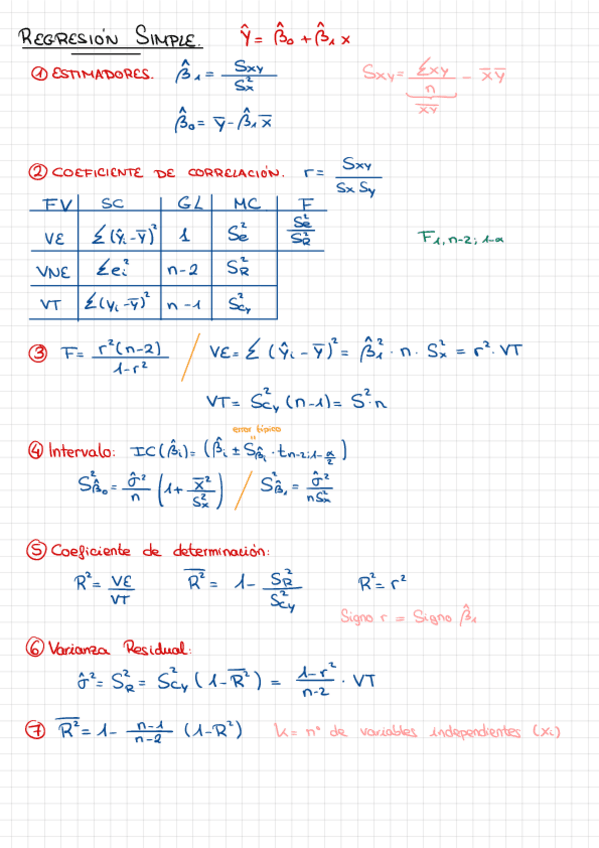 REGRESIÓN SIMPLE. Ŷ = β̂₀ + β̂₁ x
① ESTIMADORES. β̂₁ = Sxy / Sx² Sxy = Σxy / n - x̄ȳ
x̄ȳ
β̂₀ = ȳ - β̂₁ x̄
② COEFICIENTE DE CORRELACIÓN. r = Sxy / Sx Sy
FV SC GL MC F
VE Σ(ŷᵢ - ȳ)² 1 Se² Se² / SR² F₁, n-2; 1-α
VNE Σeᵢ² n-2 SR²
VT Σ(yᵢ - ȳ)² n-1 Scy²
③ F = r²(n-2) / 1-r² / VE = Σ (ŷᵢ - ȳ)² = β̂₁² · n · Sx² = r² · VT
VT = Scy² (n-1) = S² · n
error típico
④ Intervalo: IC(β̂ᵢ) = (β̂ᵢ ± Sβ̂ᵢ · t n-2; 1-α/2)
Sβ̂₀² = σ̂² / n (1 + x̄² / Sx²) / Sβ̂₁² = σ̂² / nSx²
⑤ Coeficiente de determinación:
R² = VE / VT R̄² = 1 - SR² / Scy² R² = r²
Signo r = Signo β̂₁
⑥ Varianza Residual:
σ̂² = SR² = Scy² (1 - R̄²) = 1-r² / n-2 · VT
⑦ R̄² = 1 - n-1 / n-2 (1-R²) K = nº de variables independientes (xᵢ)